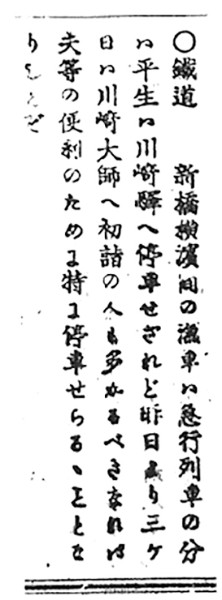 〇鐵道　新橋横濱間の滊車ハ急行列車の分
ハ平生ハ川崎驛へ停車せざれど昨日より三ケ
日ハ川崎大師へ初詣の人も多かるべきなれば
夫等の便利のために特に停車せらるゝことな
りしとぞ